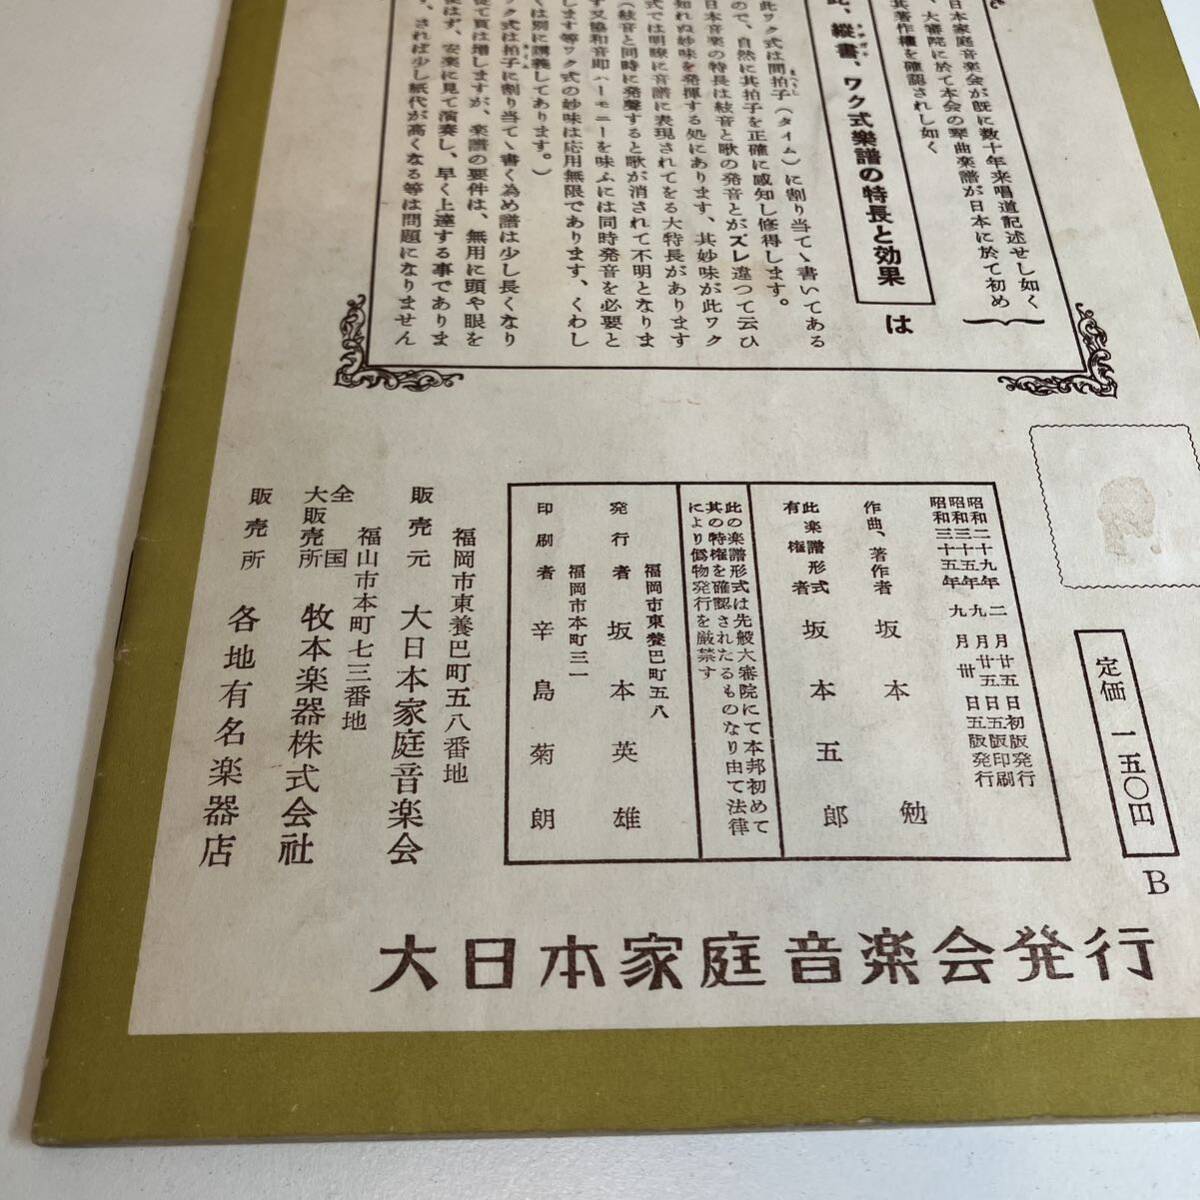 日本家庭音楽会が既に数十年来唱道記述せし如く
、大審院に於て本会の箏曲楽譜が日本に於て初め
其著作権を確認されし如く
此、縦書、ワク式樂譜の特長と効果
は
此ワク式は間拍子(タイム)に割り当てゝ書いてある
ので、自然に其拍子を正確に感知し修得します。
日本音楽の特長は絃音と歌の発音とがズレ違つて云ひ
知れぬ妙味を発揮する処にあります、其妙味が此ワク
式では明瞭に音譜に表現されてをる大特長があります
(絃音と同時に発聲すると歌が消されて不明となりま
す又協和音即ハーモニーを味ふには同時発音を必要と
します等ワク式の妙味は応用無限であります、くわし
くは別に講義してあります。)
ワク式は拍子に割り当てゝ書く為め譜は少し長くなり
従て頁は増しますが、楽譜の要件は、無用に頭や眼を
使はず、安楽に見て演奏し、早く上達する事でありま
す、されば少し紙代が高くなる等は問題になりません
定価 一五〇円
B
昭和二十九年 二月廿五日初版発行
昭和三十五年 九月廿五日五版印刷
昭和三十五年 九月卅日五版発行
作曲、著作者 坂本勉
此楽譜形式有権者 坂本五郎
此の楽譜形式は先般大審院にて本邦初めて
其の特権を確認されたるものなり由て法律
により偽物発行を厳禁す
福岡市東養巴町五八
発行者 坂本英雄
福岡市本町三一
印刷者 辛島菊朗
福岡市東養巴町五八番地
販売元 大日本家庭音楽会
福山市本町七三番地
全国大販売所 牧本楽器株式会社
販売所 各地有名楽器店
大日本家庭音楽会発行